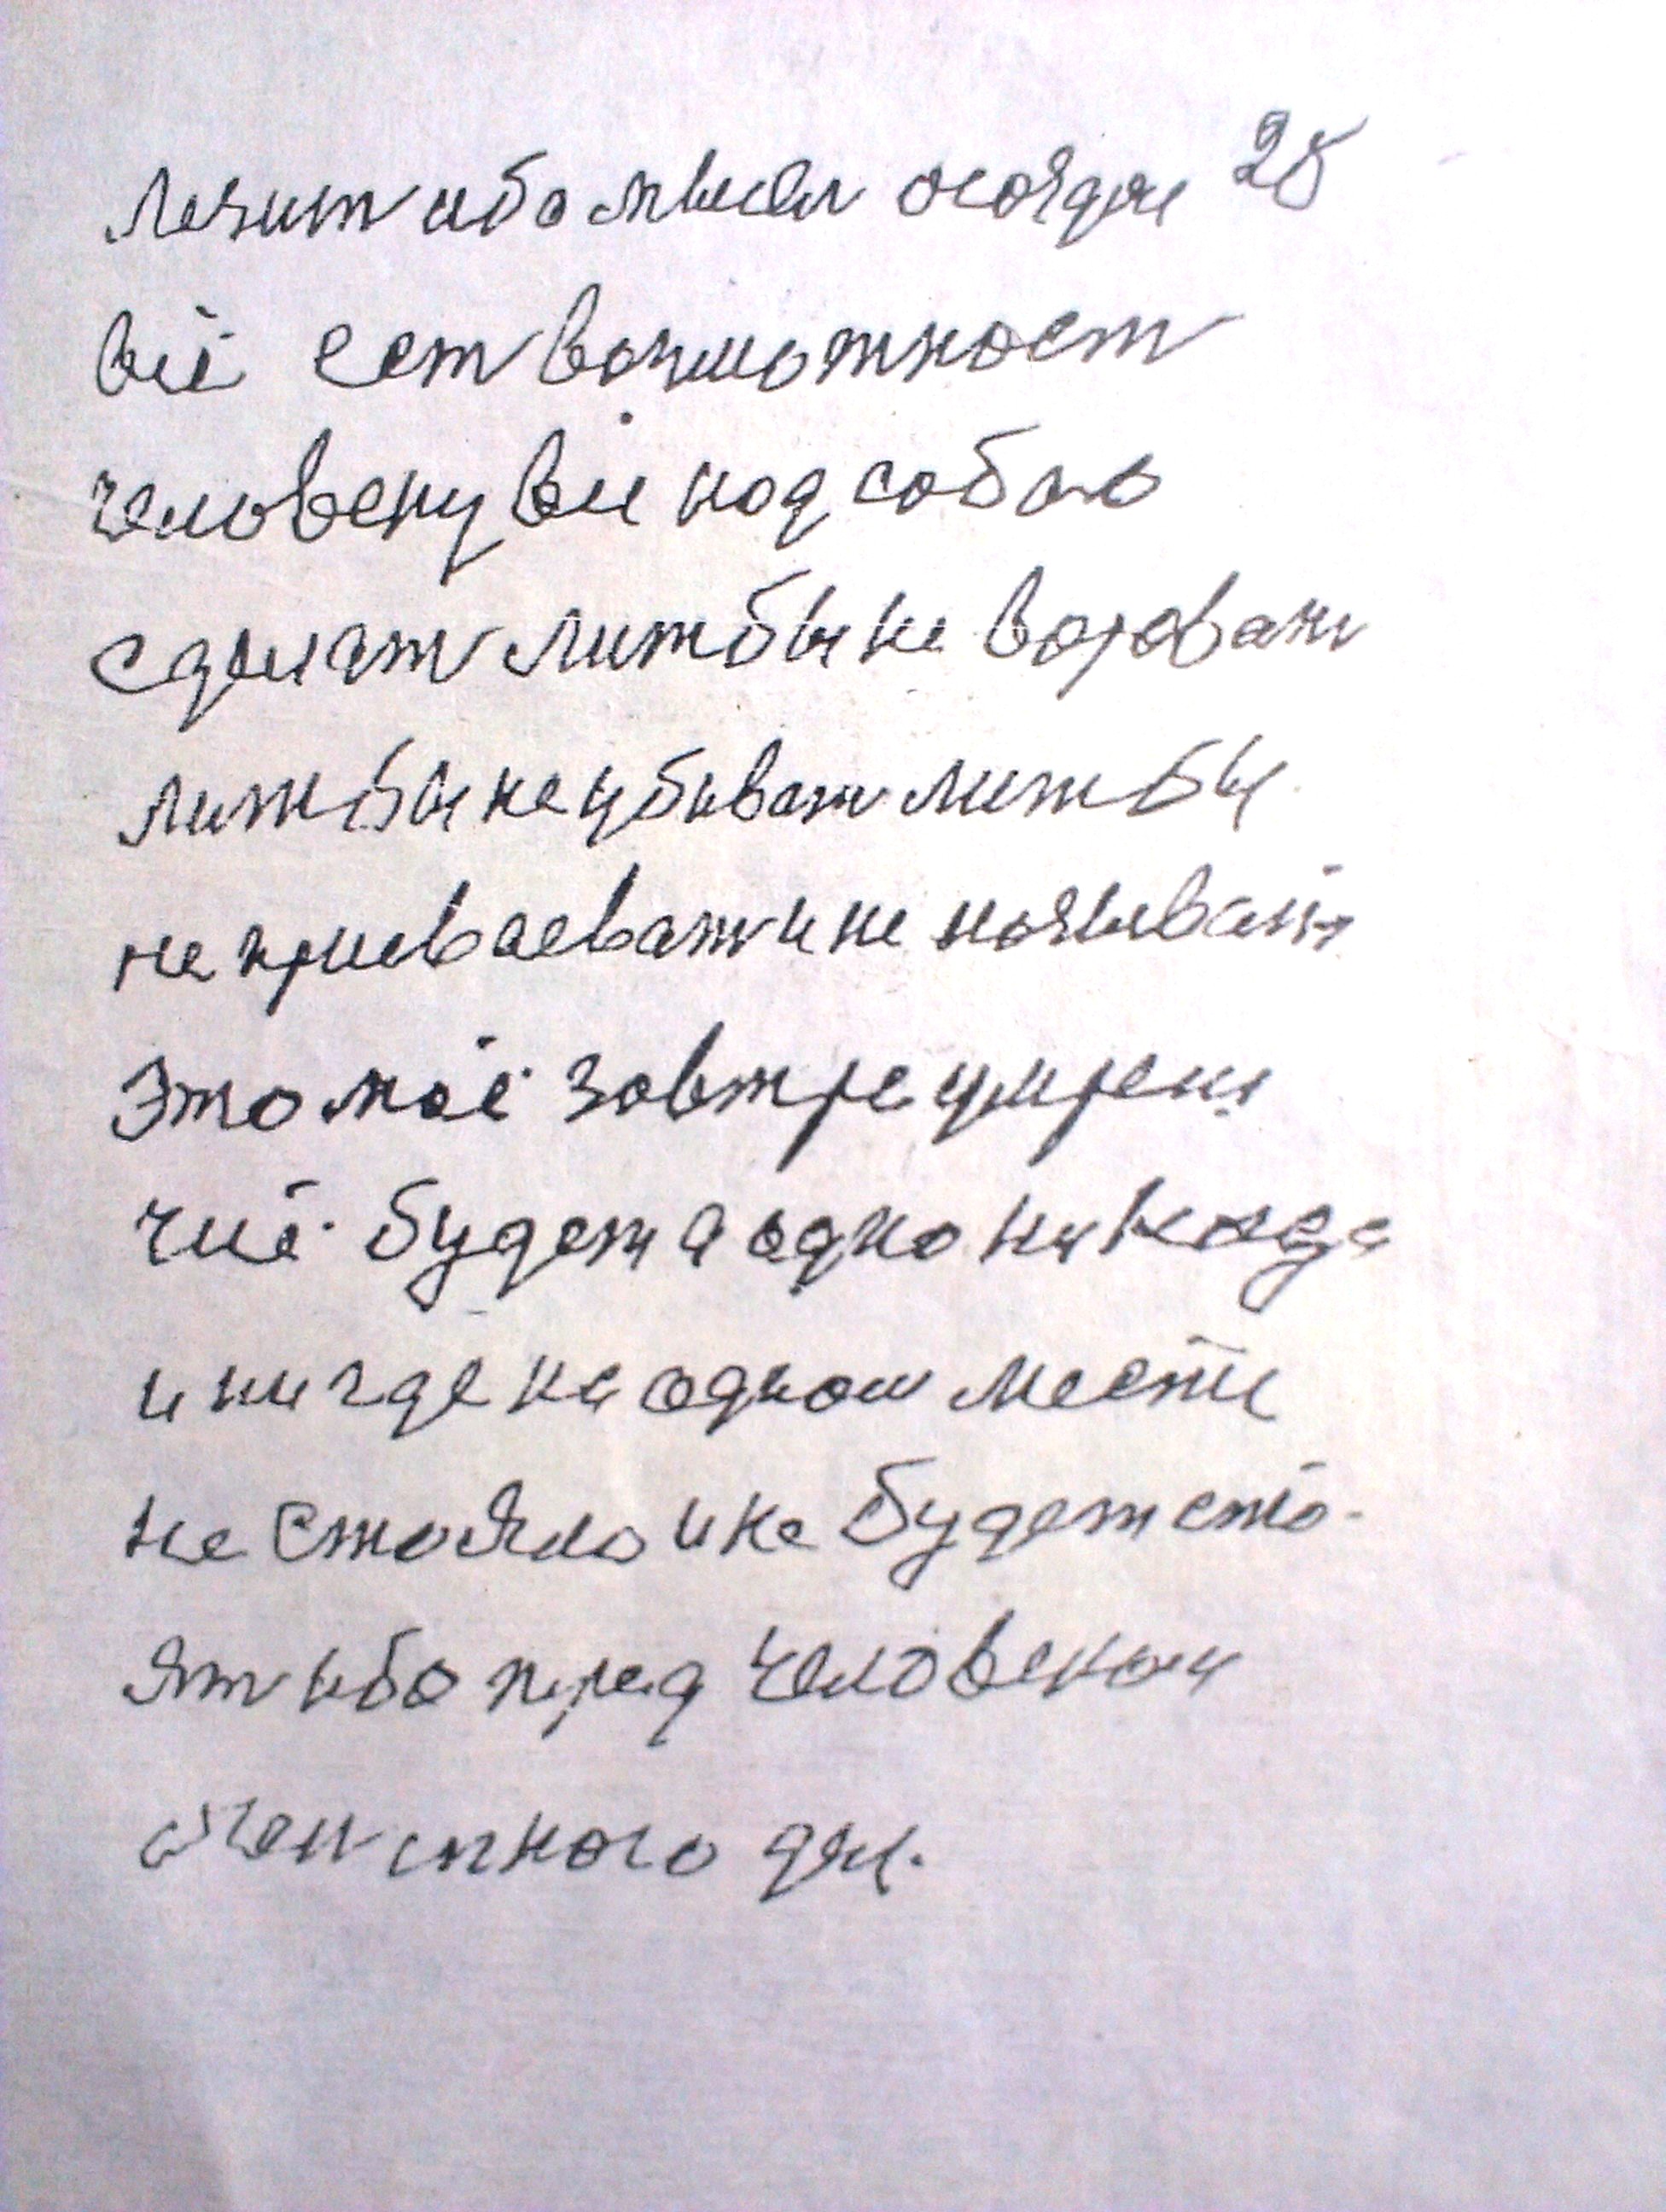 Лечит ибо мысли 28
всё ест возможност
человеку всё под собою
сделат лижбы не воровать
лижбы не убивать лижбы
не присваевать и не
Это моё завтре умреш
чиё будет а одно никогда
и ни где на одном месте
не стояло и не будет сто-
ят ибо перед человеком
очен много дел.